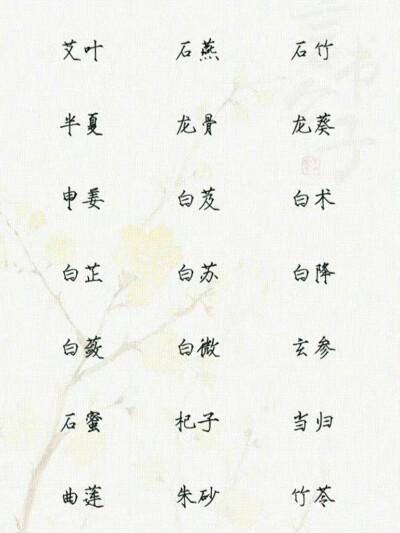 艾叶 石燕 石竹
半夏 龙骨 龙葵
申姜 白芨 白术
白芷 白苏 白降
白蔹 白微 玄参
石蜜 杞子 当归
曲莲 朱砂 竹苓